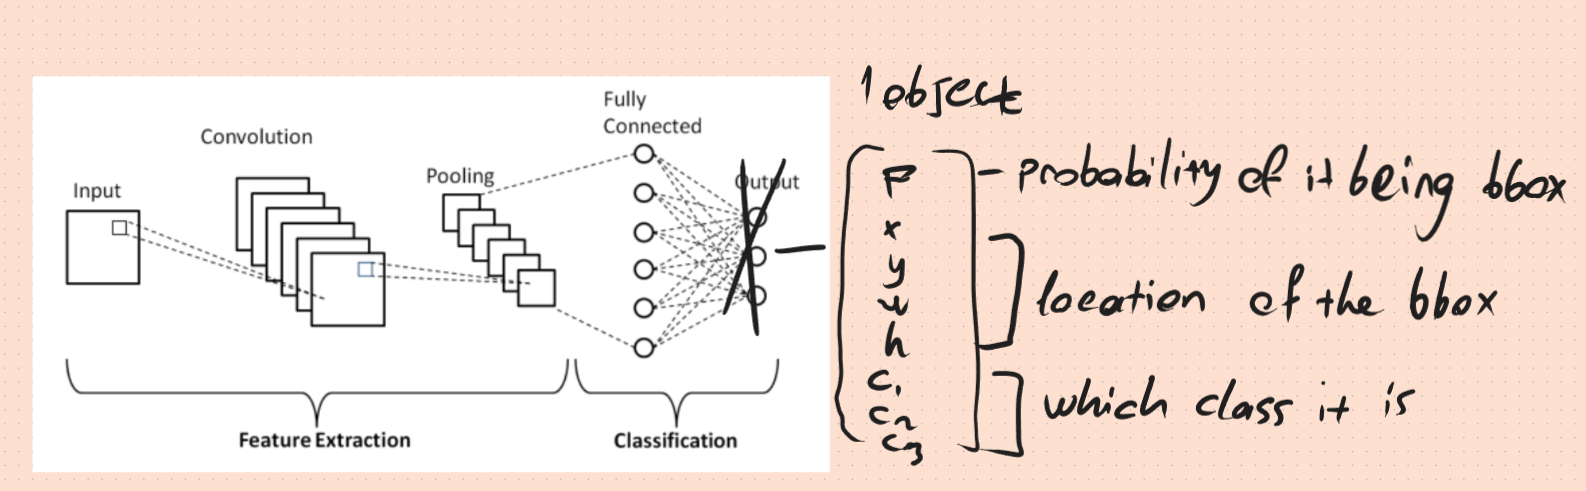 Input
Convolution
Pooling
Fully
Connected
Output
Feature Extraction
Classification
1 object
P
x
y
w
h
c1
c2
c3
- probability of it being bbox
location of the bbox
which class it is